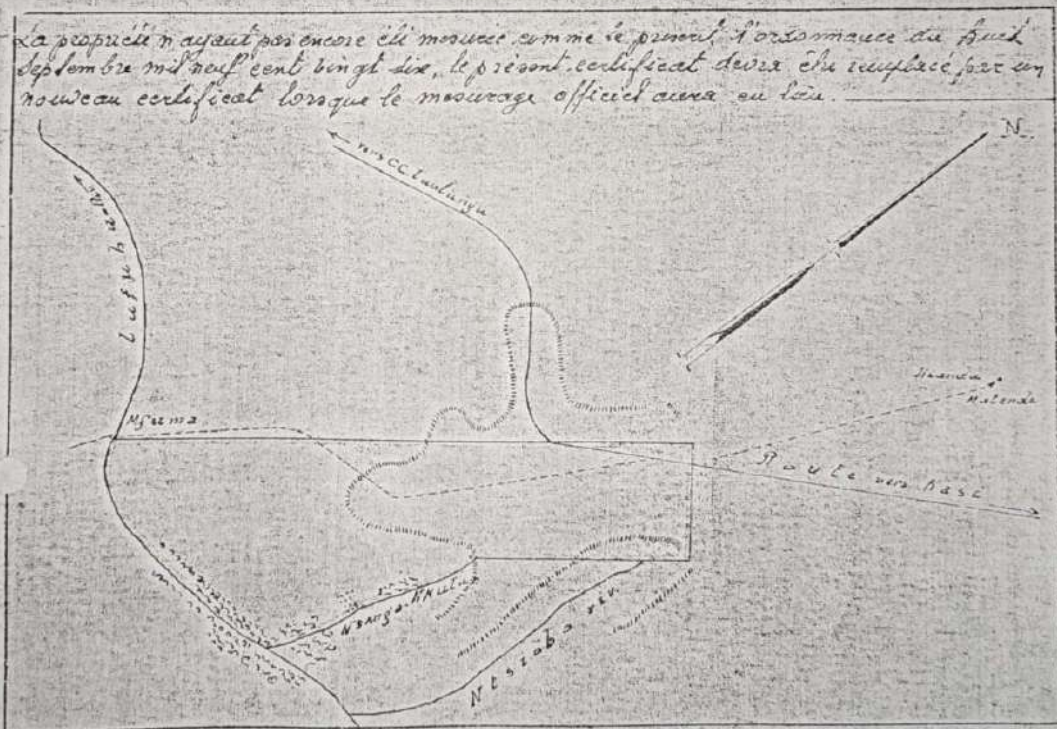 La propriété n'ayant pas encore été mesurée comme le prescrit l'ordonnance du huit
Septembre mil neuf cent vingt six, le présent certificat devra être remplacé par un
nouveau certificat lorsque le mesurage officiel aura eu lieu.
N.
vers CC
Lufuba
Mfuma
Malenda
Route vers
Nsoga-Nkulu
riv.